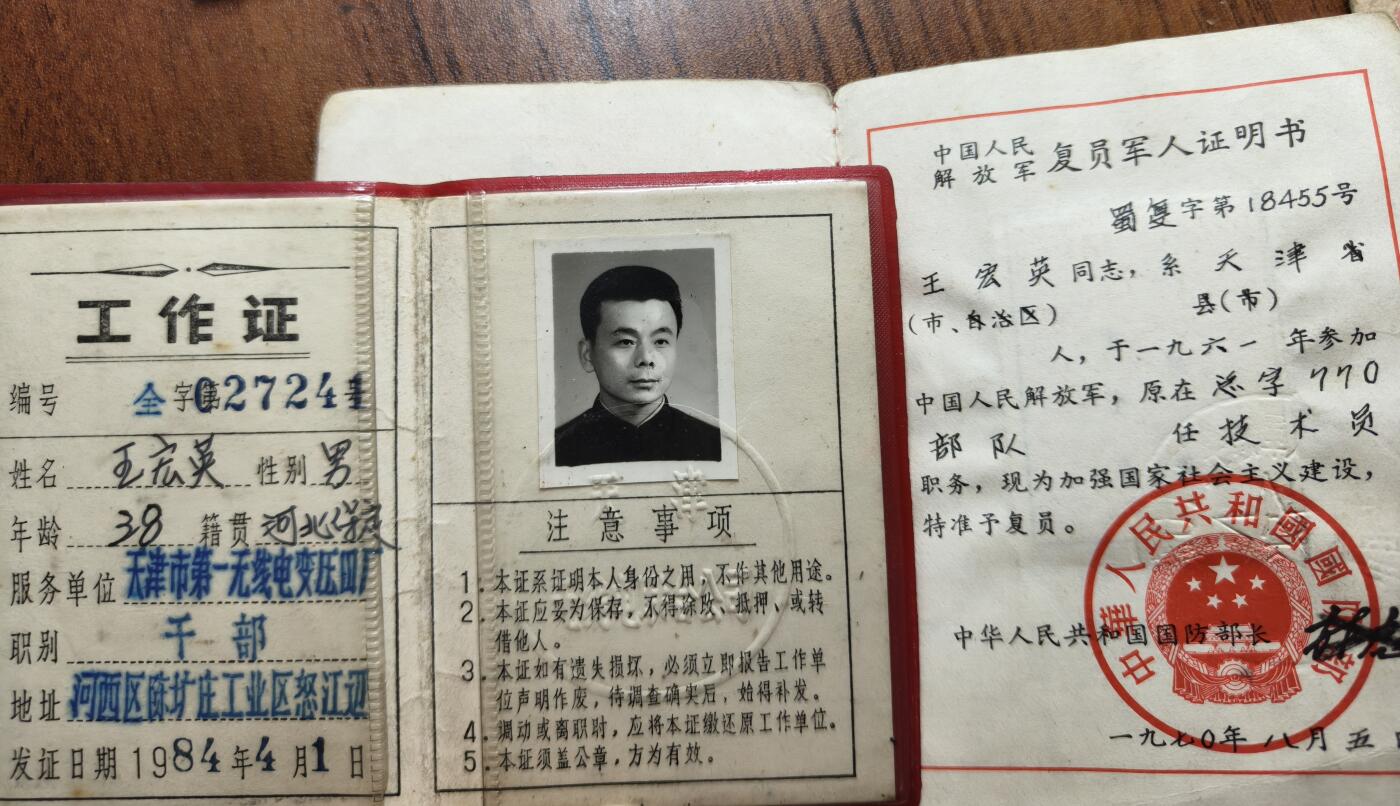 工作证
编号 全字第027244号
姓名 王宏英 性别 男
年龄 38 籍贯 河北
服务单位 天津市第一无线电变压四厂
职别 干部
地址 河西区陈圹庄工业区怒江辺
发证日期 1984年4月1日
天津
注意事项
1.本证系证明本人身份之用，不作其他用途。
2.本证应妥为保存，不得涂改、抵押、或转
借他人。
3.本证如有遗失损坏，必须立即报告工作单
位声明作废，待调查确实后，始得补发。
4.调动或离职时，应将本证缴还原工作单位。
5.本证须盖公章，方为有效。
中国人民
解放军 复员军人证明书
蜀复字第18455号
王宏英同志，系天津省
（市、自治区） 县（市）
人，于一九六一年参加
中国人民解放军，原在总字770
部队 任技术员
职务，现为加强国家社会主义建设，
特准予复员。
中华人民共和国国防部长
中华人民共和國國防部
一九七〇年八月五日